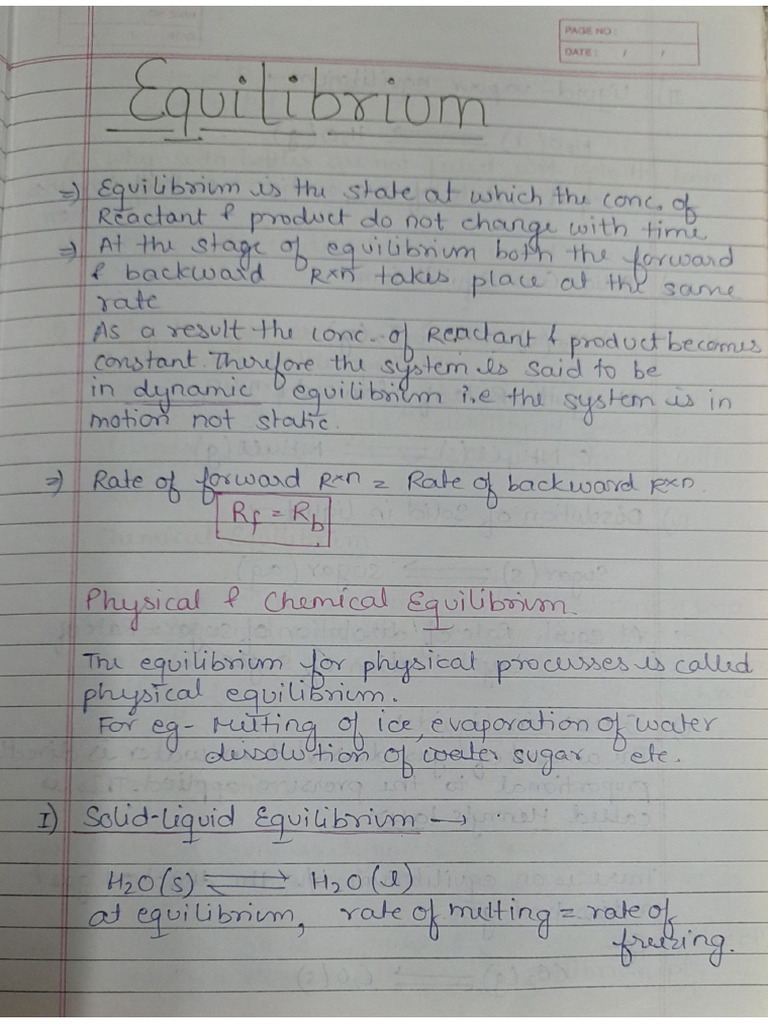 PAGE NO:
DATE: / /
Equilibrium
⇒ Equilibrium is the state at which the conc. of
Reactant & product do not change with time
⇒ At the stage of equilibrium both the forward
& backward Rxn takes place at the same
rate
As a result the conc. of Reactant & product becomes
constant. Therefore the system is said to be
in dynamic equilibrium i.e the system is in
motion not static.
⇒ Rate of forward Rxn = Rate of backward Rxn.
Rf = Rb
Physical & Chemical Equilibrium.
The equilibrium for physical processes is called
physical equilibrium.
For eg- Melting of ice, evaporation of water
dissolution of water sugar etc.
I) Solid-liquid Equilibrium →
H2O(s) ⇌ H2O(l)
at equilibrium, rate of melting = rate of
freezing.